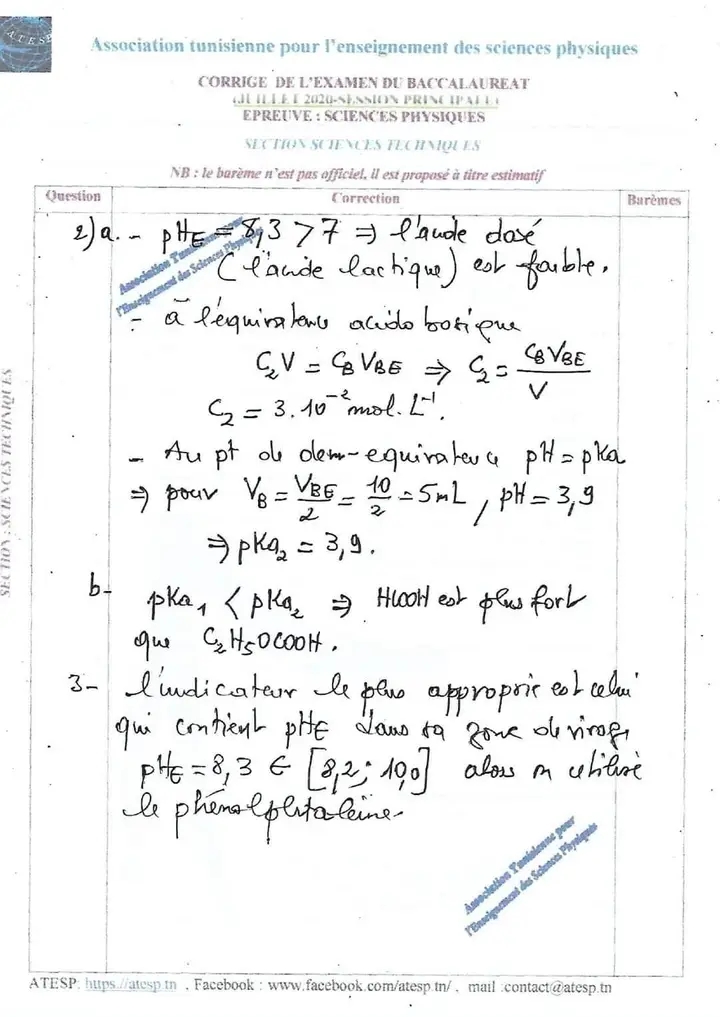 ATESP
Association tunisienne pour l'enseignement des sciences physiques
CORRIGE DE L'EXAMEN DU BACCALAUREAT
(JUILLET 2020-SESSION PRINCIPALE)
EPREUVE : SCIENCES PHYSIQUES
SECTION SCIENCES TECHNIQUES
NB : le barème n'est pas officiel, il est proposé à titre estimatif
Question Correction Barèmes
2) a. - pHE = 8,3 > 7 ⇒ l'acide dosé
(l'acide lactique) est faible.
Association Tunisienne pour
l'Enseignement des Sciences Physiques
- à l'équivalence acido basique
C₂V = CB VBE ⇒ C₂ = CB VBE / V
C₂ = 3.10⁻² mol.L⁻¹.
- Au pt de demi-equivalence pH = pKa
⇒ pour VB = VBE/2 = 10/2 = 5mL, pH = 3,9
⇒ pKa₂ = 3,9.
b- pKa₁ < pKa₂ ⇒ HCOOH est plus fort
que C₂H₅OCOOH.
3- l'indicateur le plus approprié est celui
qui contient pHE dans sa zone de virage
pHE = 8,3 ∈ [8,2; 10,0] alors on utilise
le phénolphtaleine.
Association Tunisienne pour
l'Enseignement des Sciences Physiques
SECTION : SCIENCES TECHNIQUES
ATESP: https://atesp.tn . Facebook : www.facebook.com/atesp.tn/ . mail :contact@atesp.tn